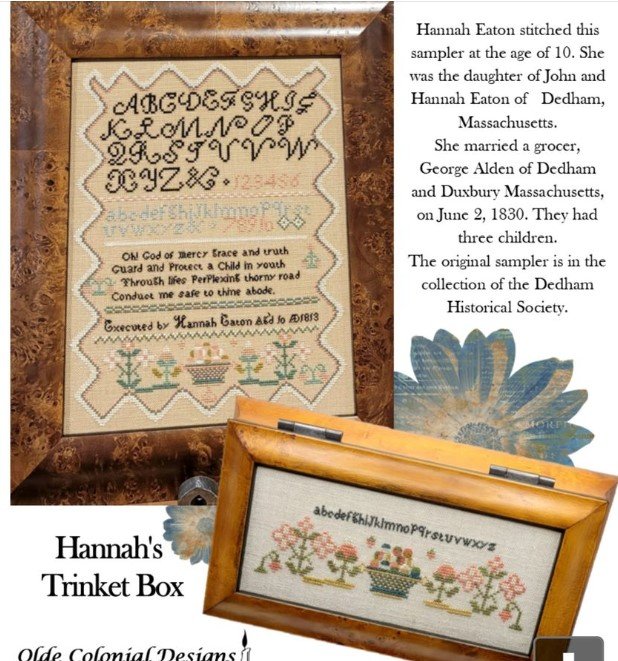 Hannah Eaton stitched this
sampler at the age of 10. She
was the daughter of John and
Hannah Eaton of Dedham,
Massachusetts.
She married a grocer,
George Alden of Dedham
and Duxbury Massachusetts,
on June 2, 1830. They had
three children.
The original sampler is in the
collection of the Dedham
Historical Society.
ABCDEFGHIJ
KLMNOP
QRSTUVW
XYZ& 123456
abcdefghijklmnopqrst
uvwxyz& 78910
Oh! God of mercy grace and truth
Guard and Protect a Child in youth
Through lifes Perplexing thorny road
Conduct me safe to thine abode.
Executed by Hannah Eaton Æd 10 AD1813
abcdefghijklmnopqrstuvwxyz
Hannah's
Trinket Box
Olde Colonial Designs